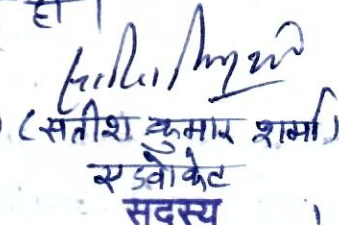 है।
(सतीश कुमार शर्मा)
एडवोकेट
सदस्य